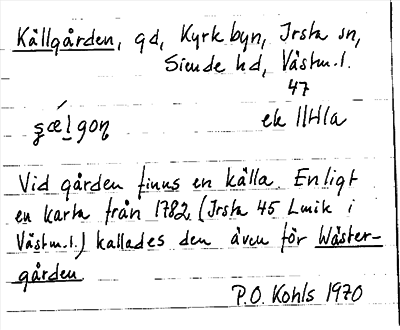 Källgården, gd, Kyrkbyn, Irsta sn,
Siende hd, Västm.l.
47
ek 11H1a
Vid gården finns en källa. Enligt
en karta från 1782 (Irsta 45 Lmk i
Västm.l.) kallades den även för Wäster-
gården
P.O. Kohls 1970